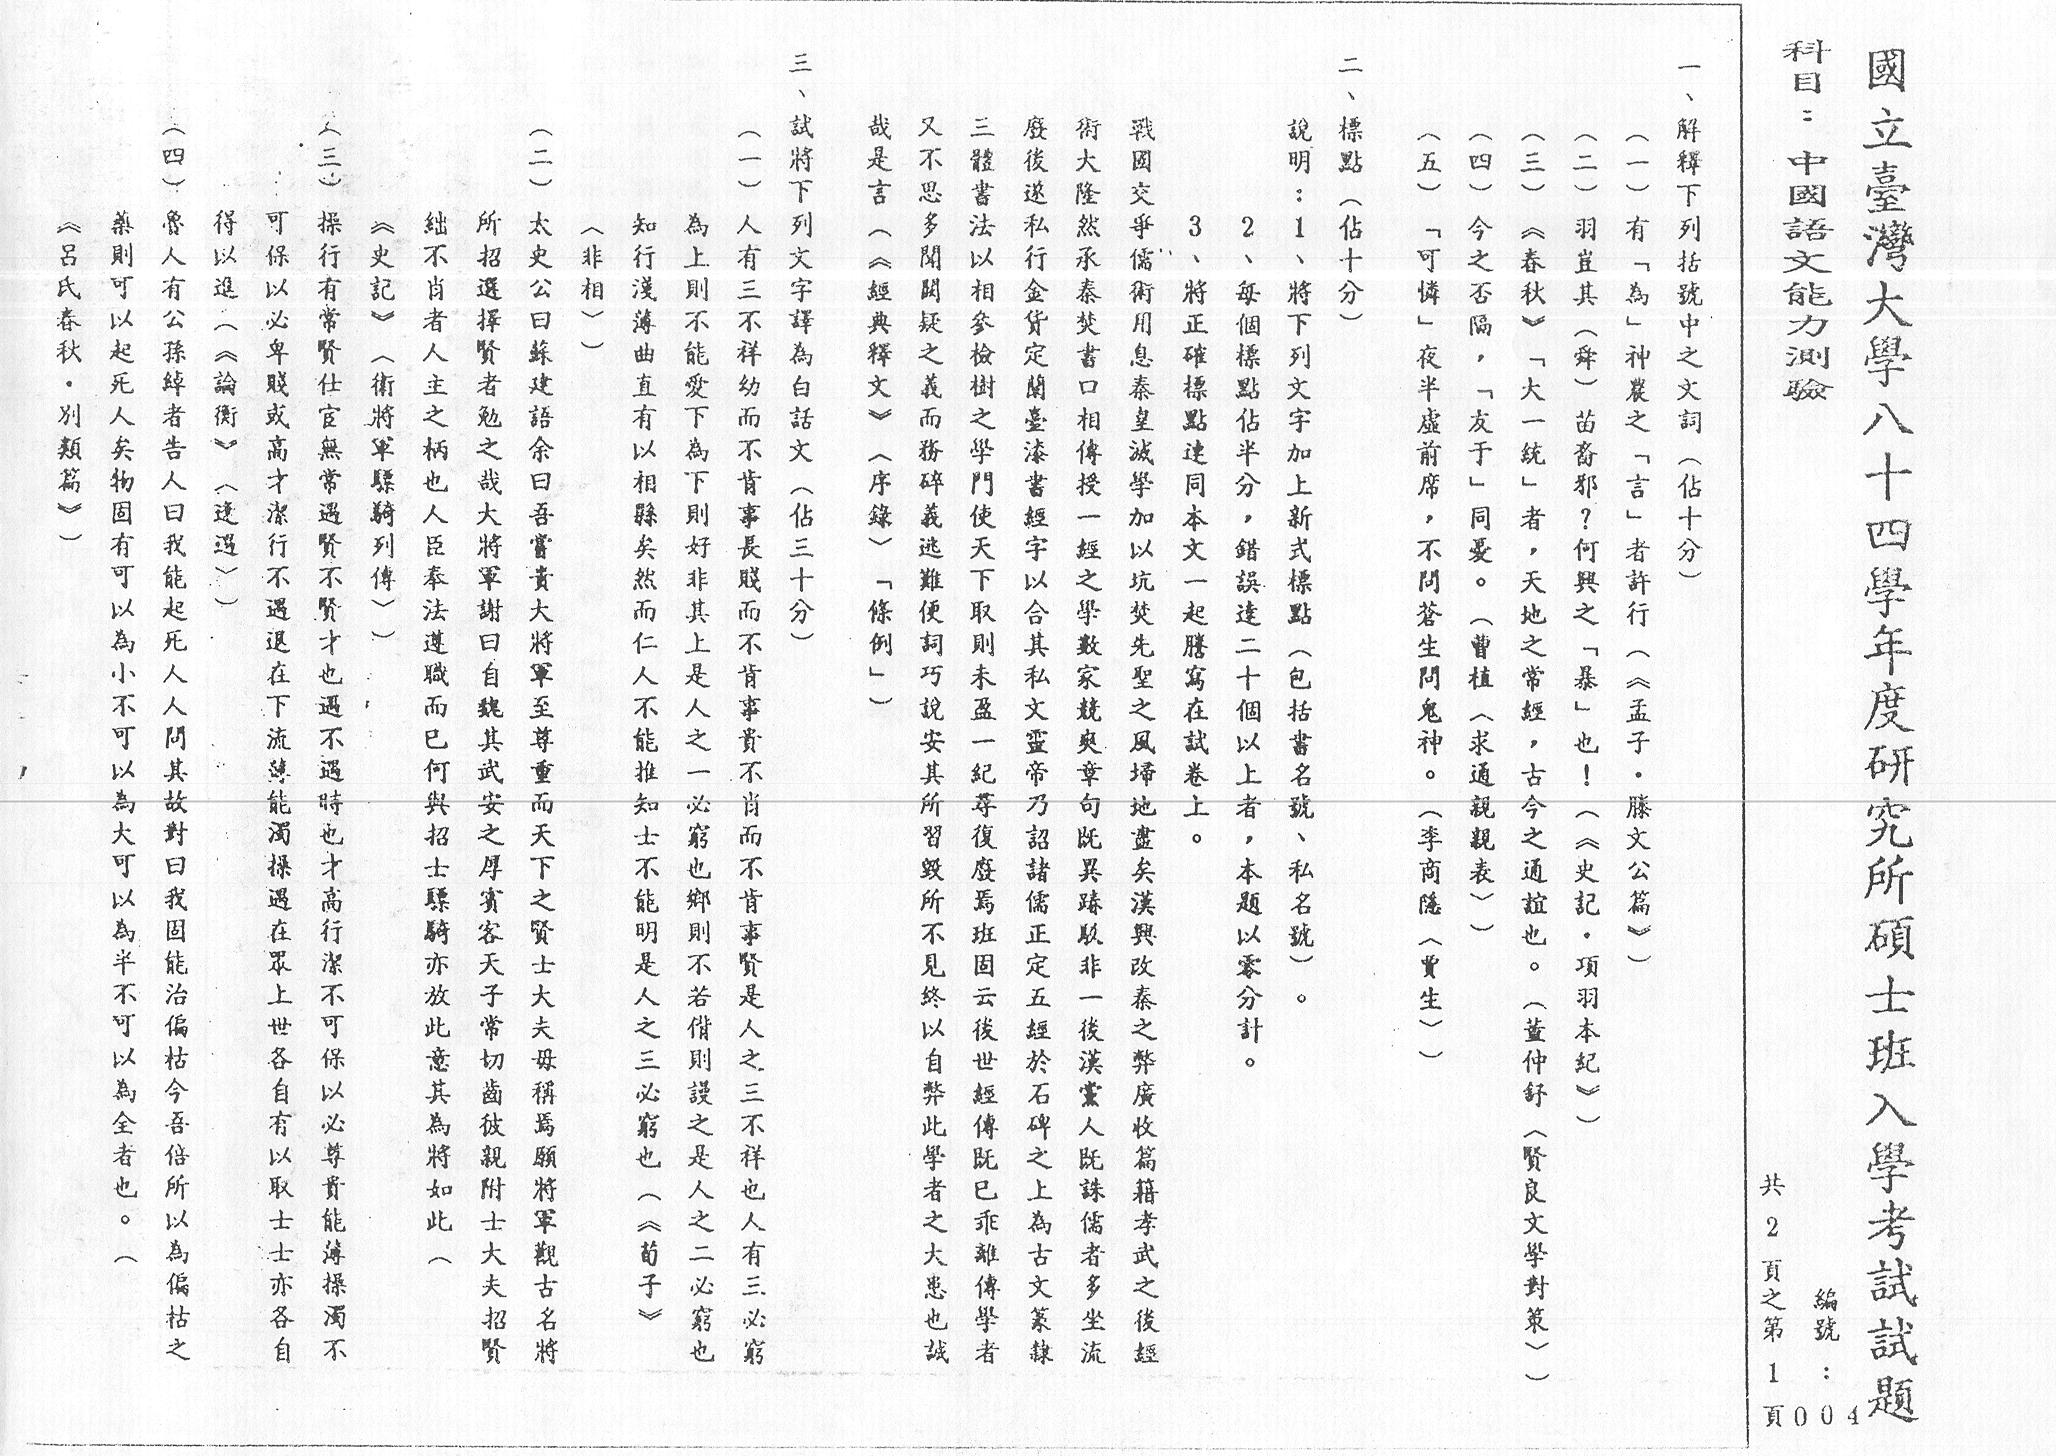 國立臺灣大學八十四學年度研究所碩士班入學考試試題
科目：中國語文能力測驗
編號：004
共2頁之第1頁
一、解釋下列括號中之文詞（佔十分）
（一）有「為」神農之「言」者許行（《孟子·滕文公篇》）
（二）羽豈其（舜）苗裔邪？何興之「暴」也！（《史記·項羽本紀》）
（三）《春秋》「大一統」者，天地之常經，古今之通誼也。（董仲舒〈賢良文學對策〉）
（四）今之否隔，「友于」同憂。（曹植〈求通親親表〉）
（五）「可憐」夜半虛前席，不問蒼生問鬼神。（李商隱〈賈生〉）
二、標點（佔十分）
說明：1、將下列文字加上新式標點（包括書名號、私名號）。
2、每個標點佔半分，錯誤達二十個以上者，本題以零分計。
3、將正確標點連同本文一起謄寫在試卷上。
戰國交爭儒術用息秦皇滅學加以坑焚先聖之風埽地盡矣漢興改秦之弊廣收篇籍孝武之後經
術大隆然承秦焚書口相傳授一經之學數家競爽章句既異踳駁非一後漢黨人既誅儒者多坐流
廢後遂私行金貨定蘭臺漆書經字以合其私文靈帝乃詔諸儒正定五經於石碑之上為古文篆隸
三體書法以相參檢樹之學門使天下取則未盈一紀尋復廢焉班固云後世經傳既已乖離傳學者
又不思多聞闕疑之義而務碎義逃難便詞巧說安其所習毀所不見終以自弊此學者之大患也誠
哉是言（《經典釋文》〈序錄〉「條例」）
三、試將下列文字譯為白話文（佔三十分）
（一）人有三不祥幼而不肯事長賤而不肯事貴不肖而不肯事賢是人之三不祥也人有三必窮
為上則不能愛下為下則好非其上是人之一必窮也鄉則不若偝則謾之是人之二必窮也
知行淺薄曲直有以相縣矣然而仁人不能推知士不能明是人之三必窮也（《荀子》
〈非相〉）
（二）太史公曰蘇建語余曰吾嘗責大將軍至尊重而天下之賢士大夫毋稱焉願將軍觀古名將
所招選擇賢者勉之哉大將軍謝曰自魏其武安之厚賓客天子常切齒彼親附士大夫招賢
絀不肖者人主之柄也人臣奉法遵職而已何與招士驃騎亦放此意其為將如此（
《史記》〈衛將軍驃騎列傳〉）
（三）操行有常賢仕宦無常遇賢不賢才也遇不遇時也才高行潔不可保以必尊貴能薄操濁不
可保以必卑賤或高才潔行不遇退在下流薄能濁操遇在眾上世各自有以取士士亦各自
得以進（《論衡》〈逢遇〉）
（四）魯人有公孫綽者告人曰我能起死人人問其故對曰我固能治偏枯今吾倍所以為偏枯之
藥則可以起死人矣物固有可以為小不可以為大可以為半不可以為全者也。（
《呂氏春秋·別類篇》）